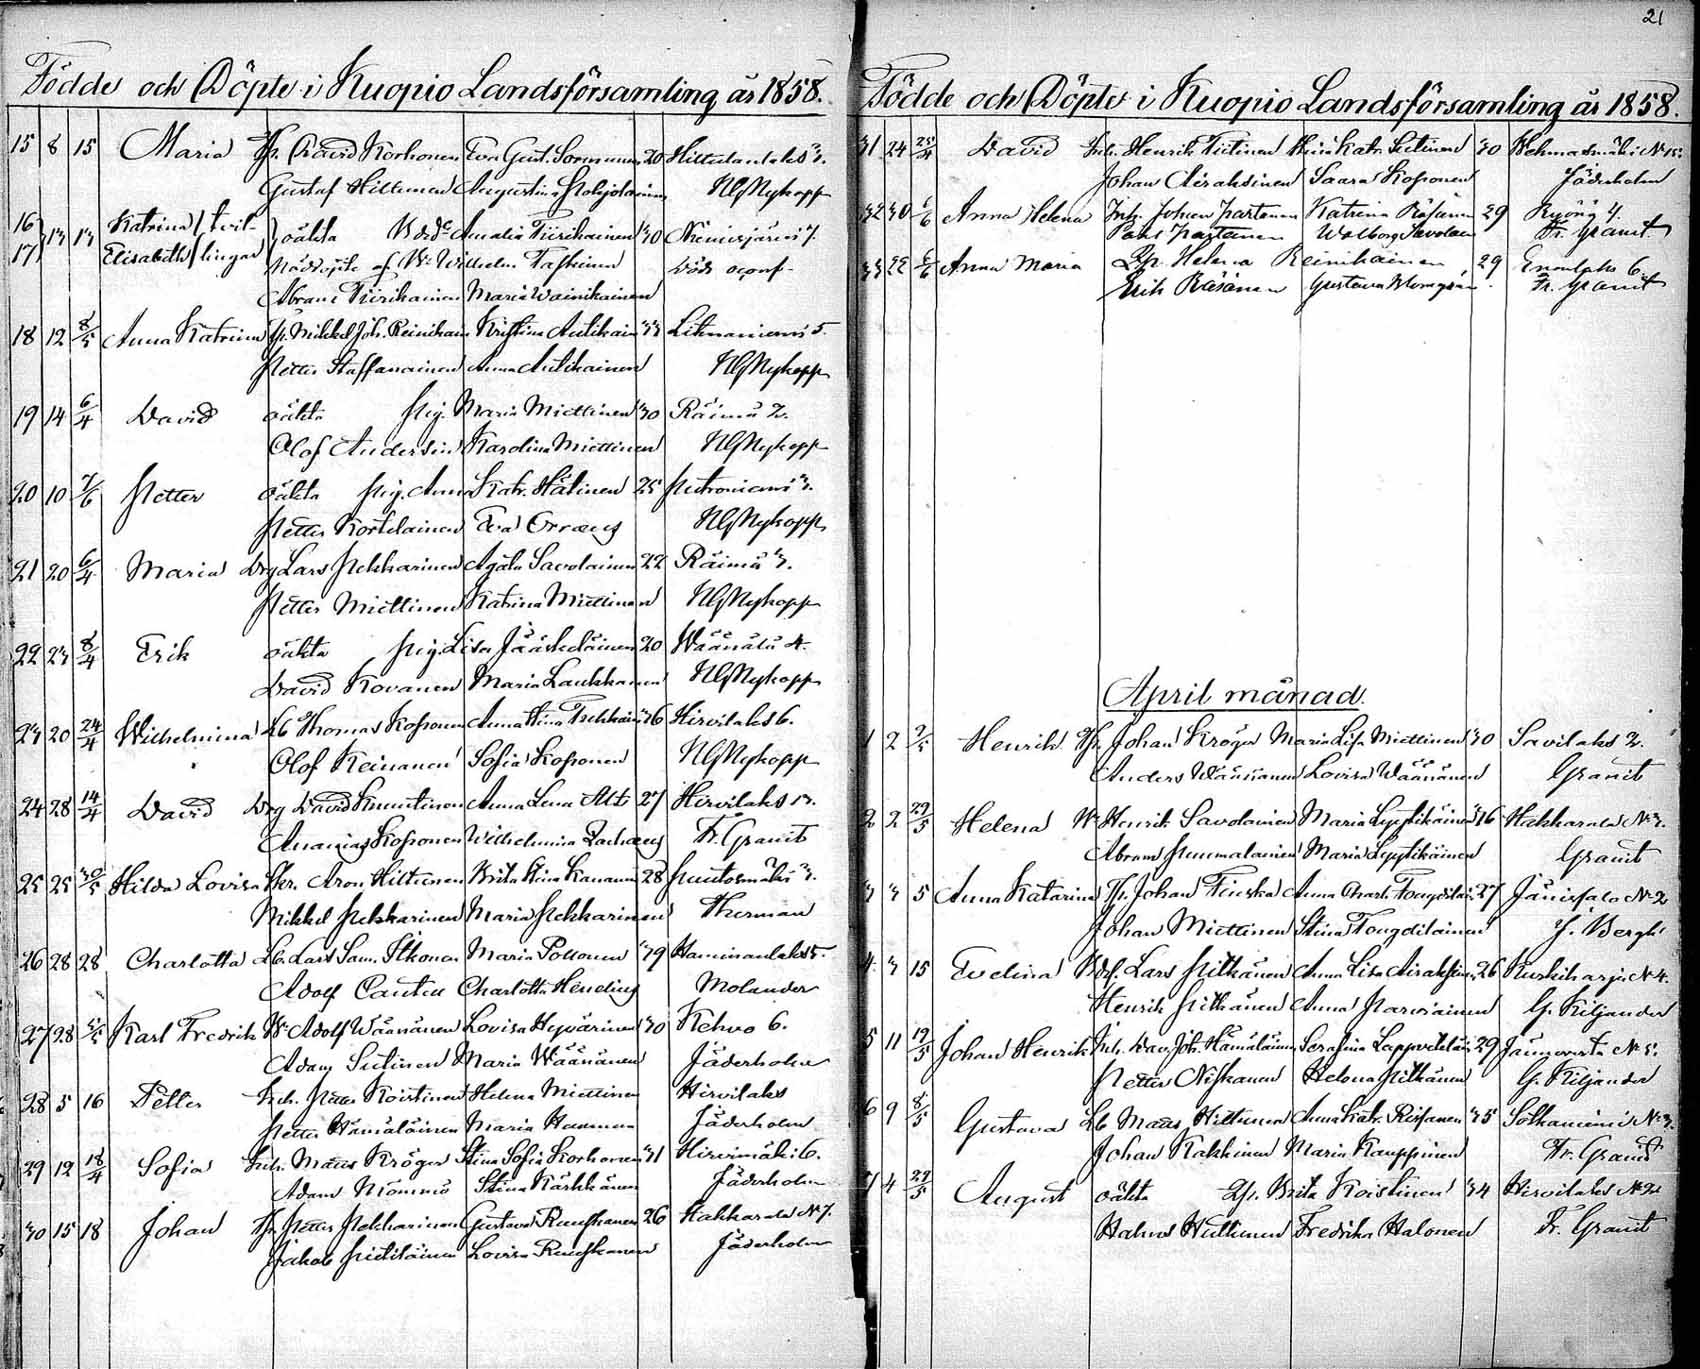 21
Födde och Döpte i Kuopio Landsförsamling år 1858.
15 8 15 Maria David Korhonen Eva Gust. Sormunen 20 Hiltulanlaks 3.
Gustaf Hiltunen Augustina Pohjolainen NGNykopp
16 Katrina tvil-
17 13 13 Elisabeth lingar oäkta Amalia Tiirikainen 30 Niemisjärvi 7.
Nöddöpte af Wilhelm Taskinen Död
Abram Tiirikainen Maria Wainikainen
18 12 8/5 Anna Katrina Mikkel Joh. Reinikain Kristina Autikain 33 Litmaniemi 5.
Petter Staffanainen Anna Autikainen NGNykopp
19 14 6/4 David oäkta Pig. Maria Miettinen 30 Räimä 2.
Olof Andersin Karolina Miettinen NGNykopp
20 10 7/6 Petter oäkta Pig. Anna Katr. Hätinen 25 Putroniemi 3.
Petter Kortelainen Eva Orraeus NGNykopp
21 20 6/4 Maria Drg Lars Pekkarinen Agata Savolainen 22 Räimä 3.
Petter Miettinen Katrina Miettinen NGNykopp
22 23 8/4 Erik oäkta Pig. Lisa Jääskeläinen 20 Wäänälä 4.
David Kovanen Maria Laukkanen NGNykopp
23 20 24/4 Wilhelmina Lb Thomas Kosonen Anna Stina 36 Hirvilaks 6.
Olof Keinanen Sofia Kosonen NGNykopp
24 28 14/4 David Drg David Knuutinen Anna Lena 27 Hirvilaks 13.
Ananias Kosonen Wilhelmina Zachæus Fr. Granit
25 25 30/5 Hilda Lovisa Aron Hiltunen Brita Stina Kananen 28 Puutosmäki 3.
Mikkel Pekkarinen Maria Pekkarinen Therman
26 28 28 Charlotta Lb. Lars Sam. Itkonen Maria Pollonen 39 Haminanlaks 5.
Adolf Charlotta Molander
27 28 5/5 Karl Fredrik Adolf Wäänänen Lovisa Hyvärinen 30 Kehvo 6.
Adam Sutinen Maria Wäänänen Jäderholm
28 5 16 Petter Inh. Petter Koistinen Helena Miettinen Hirvilaks
Petter Hämäläinen Maria Jäderholm
29 12 18/4 Sofia Inh. Mats Kröger Stina Sofia Korhonen 31 Hirvimäki 6.
Adam Mömmö Stina Kärkkänen Jäderholm
30 15 18 Johan Petter Pekkarinen Gustava Ruuskanen 26 Hakkarala N 7.
Jakob Pietiläinen Lovisa Ruuskanen Jäderholm
Födde och Döpte i Kuopio Landsförsamling år 1858.
31 24 25/4 David Inh. Henrik Tiitinen Katr. 30 Wehmasmäki N 15.
Johan Airaksinen Saara Kosonen Jäderholm
32 30 1/6 Anna Helena Inh. Johan Partanen Katrina Räsänen 29 Ryöny 4.
Paul Partanen Walborg Savolain Fr. Granit
33 22 5/6 Anna Maria Helena Reinikainen 29 6.
Erik Räsänen Gustava Fr. Granit
April månad.
1 2 2/5 Henrik Johan Kröger Maria Lisa Miettinen 30 Savilaks 2.
Anders Wäänänen Lovisa Wäänänen Granit
2 2 29/5 Helena Henrik Savolainen Maria Lyytikäinen 36 Hakkarala N 3.
Abram Puumalainen Maria Lyytikäinen Granit
3 3 5 Anna Katarina Johan Tiuska Anna Charl. 27 Jänissalo N 2
Johan Miettinen Stina J. Bergh
4 3 15 Evelina Lars Pitkänen Anna Lisa Airaksinen 26 Kurkiharju N 4.
Henrik Pitkänen Anna Parviainen G. Kiljander
5 11 19/5 Johan Henrik Inh. Dav. Joh. Hämäläinen Serafina Lappeteläin 29 Jännevirta N 5.
Petter Niskanen Helena Pitkänen G. Kiljander
6 9 8/5 Gustava Lb Mats Hiltunen Anna Katr. Rissanen 35 Sotkaniemi N 3.
Johan Kakkinen Maria Kauppinen Fr. Granit
7 4 29/5 August oäkta Brita Koistinen 34 Hirvilaks N 2
Halonen Fredrika Halonen Fr. Granit